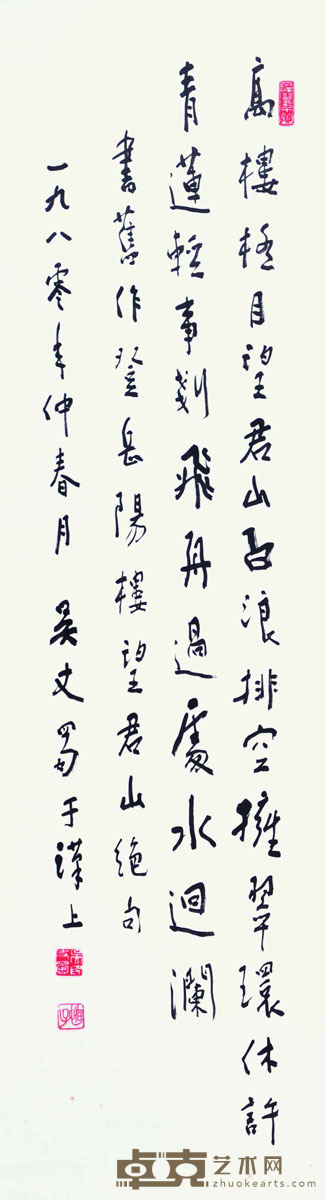 高樓極目望君山白浪排空擁翠環休許
青蓮輕事剗飛舟過處水迴瀾
書舊作登岳陽樓望君山絕句
一九八零年仲春月 吳丈蜀于漢上
卓克艺术网
zhuokearts.com